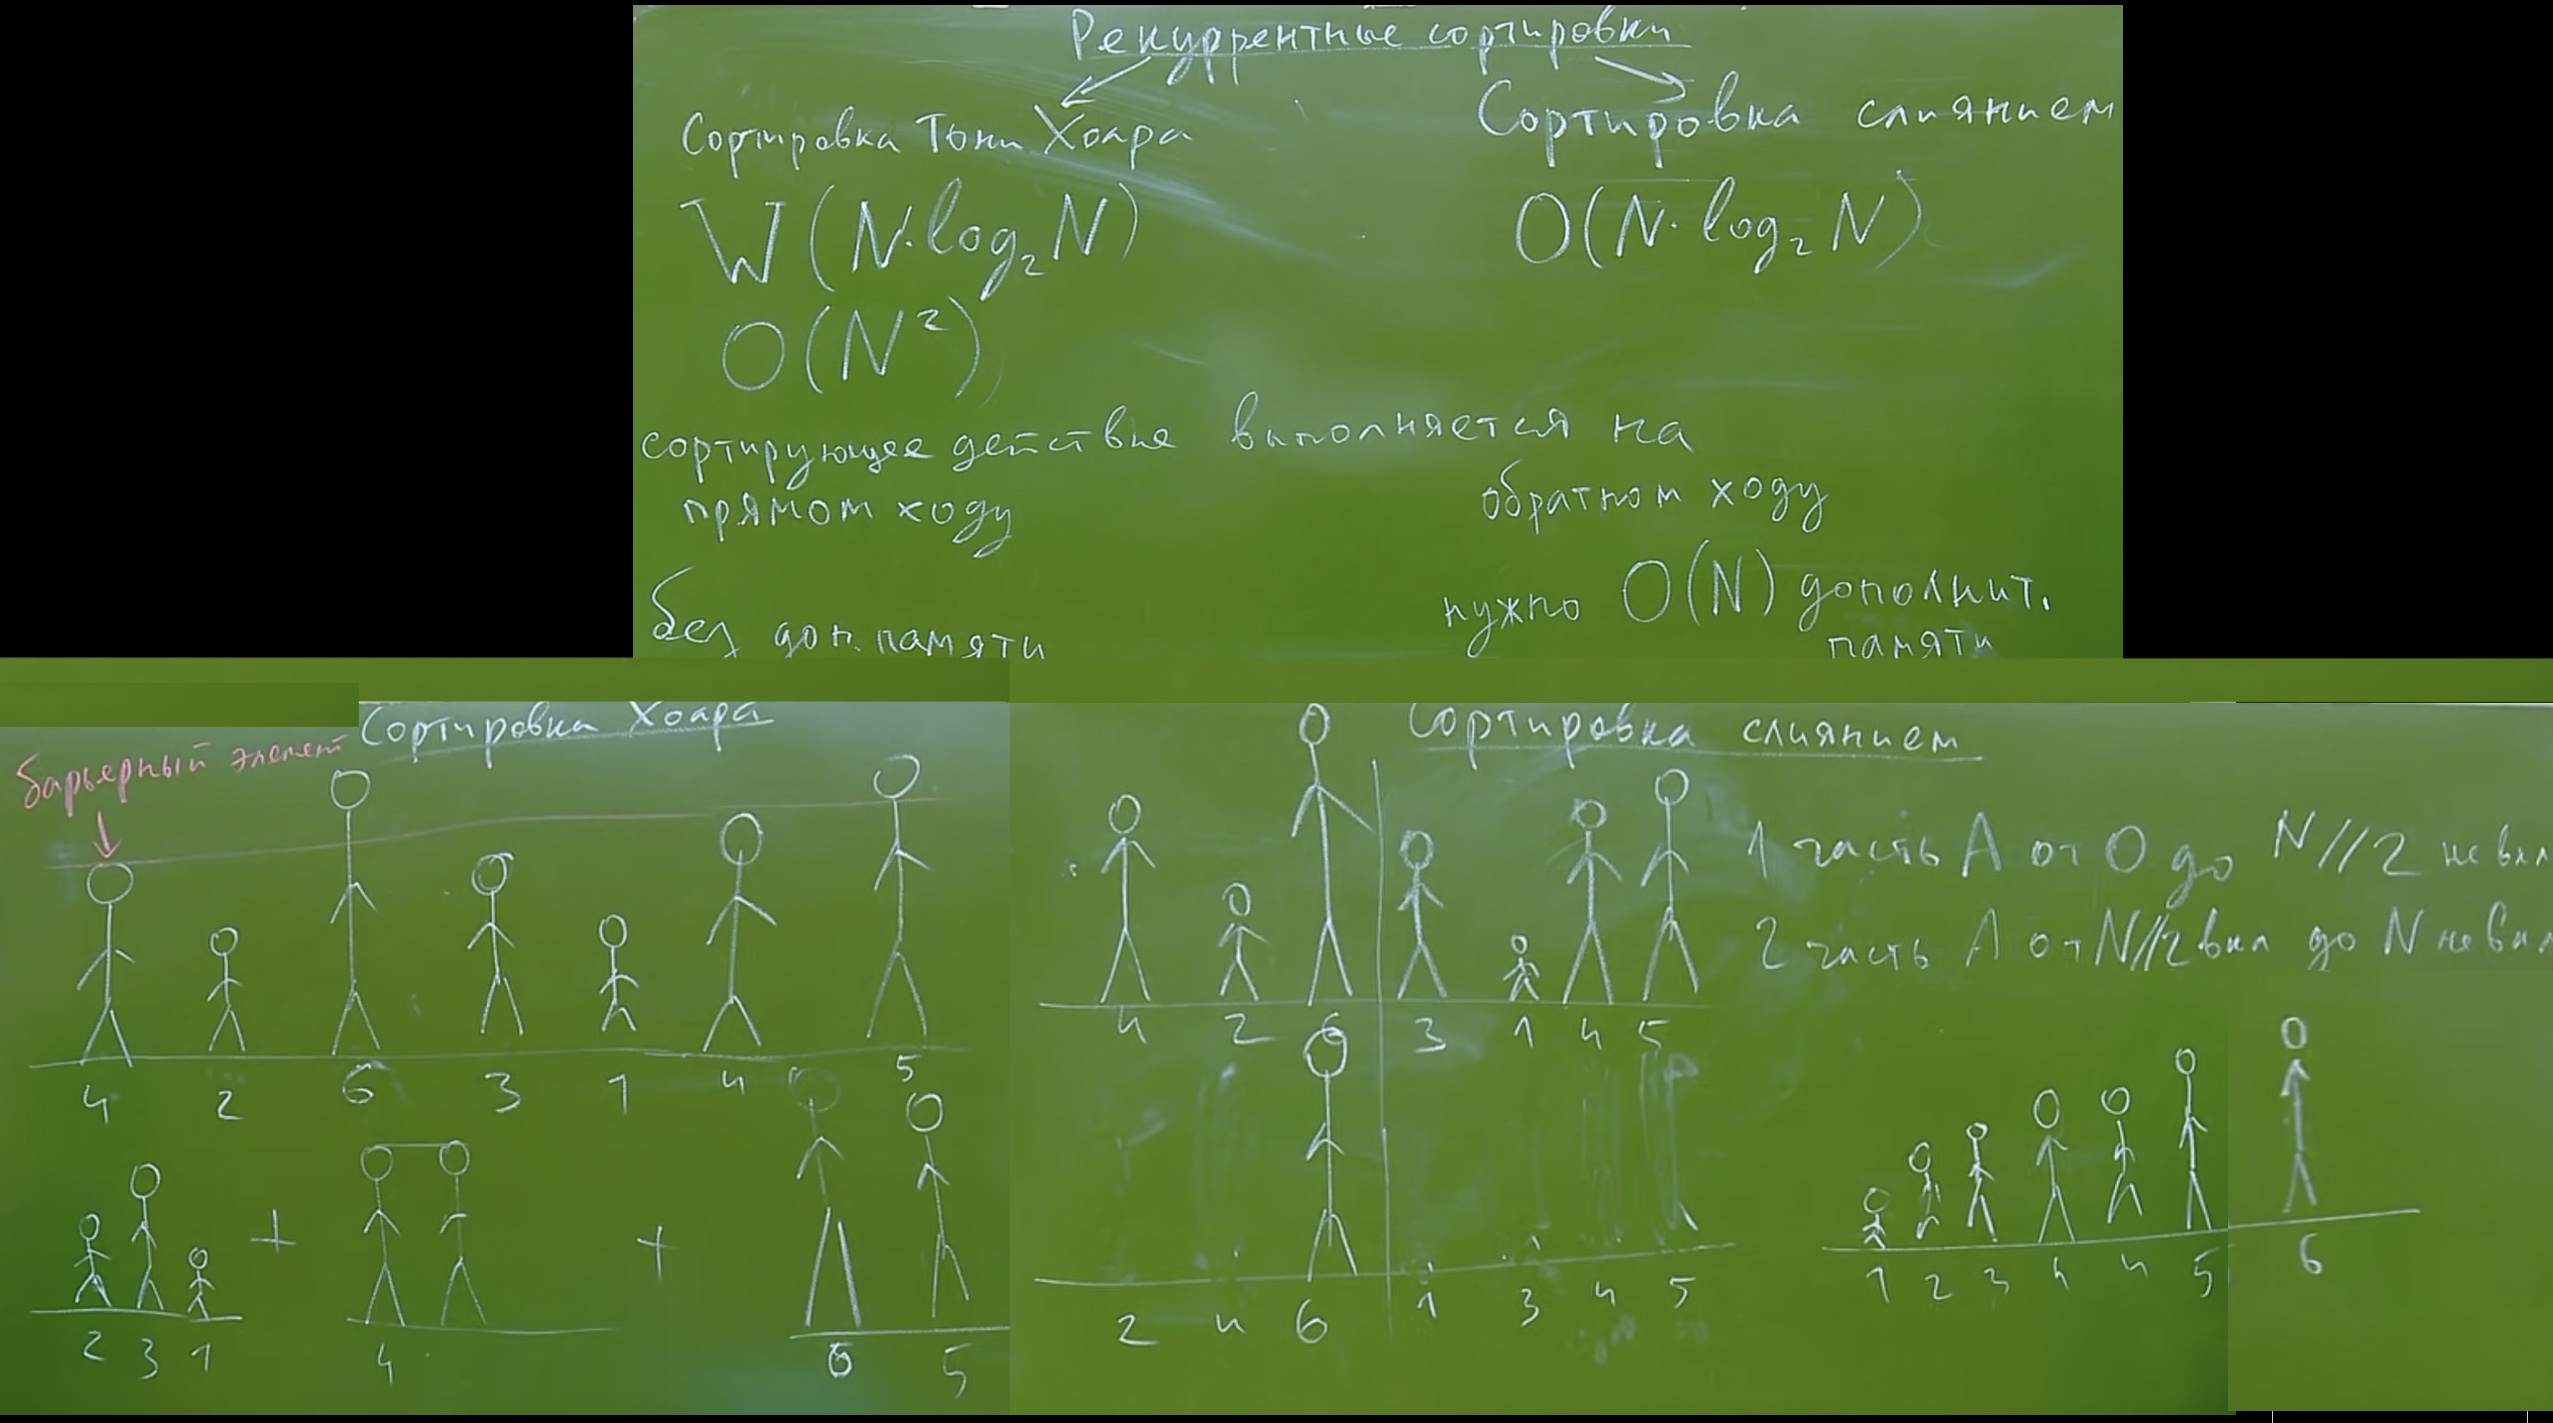 Рекуррентные сортировки
Сортировка Тони Хоара
W(N·log₂N)
O(N²)
Сортировка слиянием
O(N·log₂N)
сортирующее действие выполняется на
прямом ходу
обратном ходу
без доп. памяти
нужно O(N) дополнит.
памяти
Сортировка Хоара
барьерный элемент
4 2 6 3 1 4 5
2 3 1 + 4 + 6 5
Сортировка слиянием
1 часть A от 0 до N//2 не вкл
2 часть A от N//2 вкл до N не вкл
4 2 6 3 1 4 5
2 4 6 1 3 4 5
1 2 3 4 4 5 6